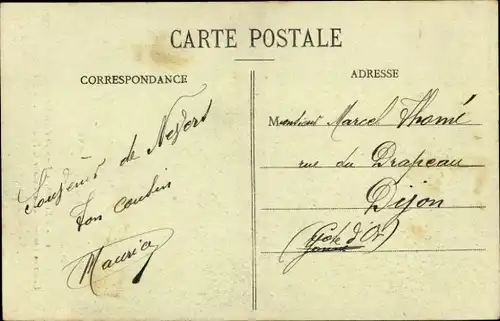 CARTE POSTALE
CORRESPONDANCE
Souvenir de Nevers
Ton cousin
Maurice
ADRESSE
Monsieur Marcel Thomé
rue du Drapeau
Dijon
(Côte d'Or)